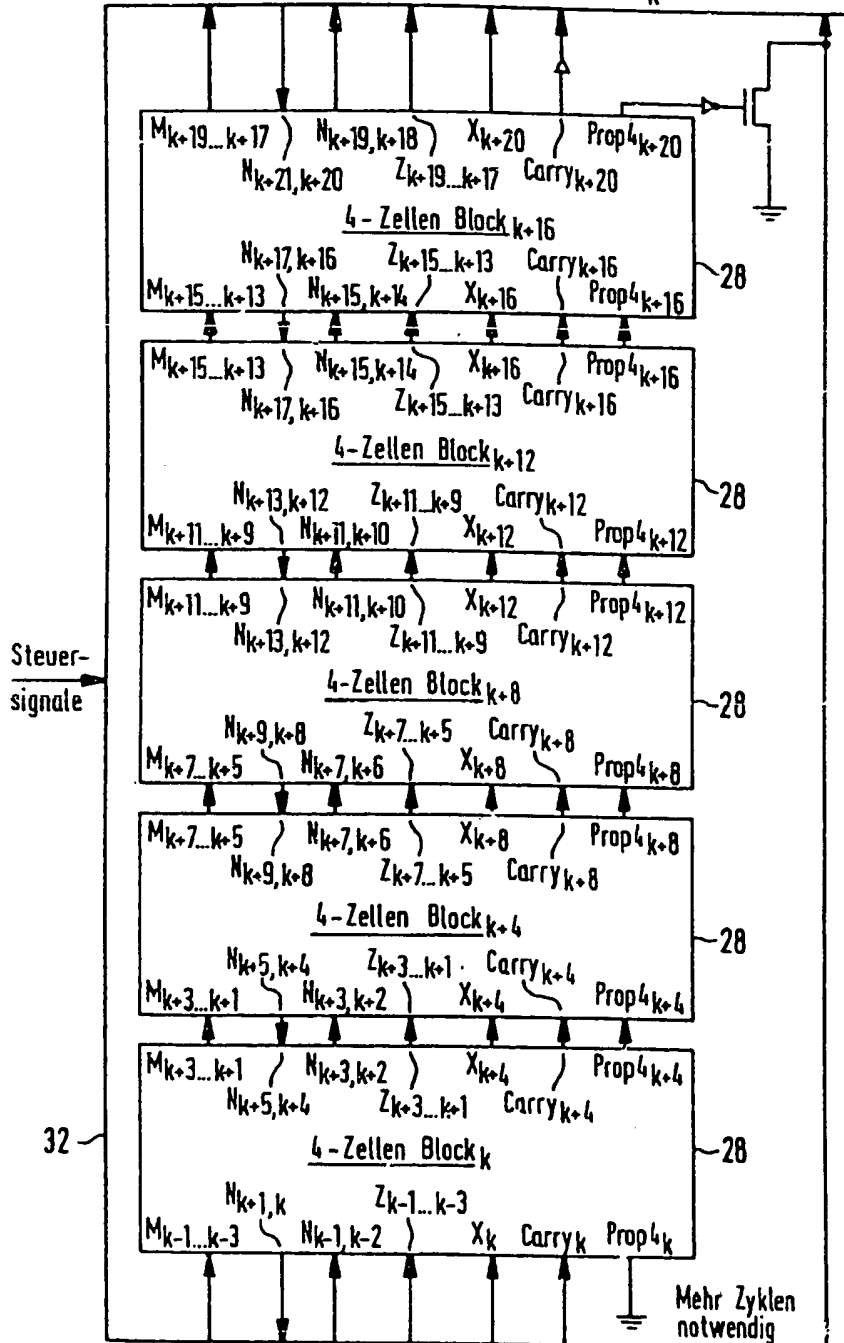 K
M k+19...k+17 N k+19, k+18 X k+20 Prop4 k+20
N k+21, k+20 Z k+19...k+17 Carry k+20
4-Zellen Block k+16
N k+17, k+16 Z k+15...k+13 Carry k+16
28
M k+15...k+13 N k+15, k+14 X k+16 Prop4 k+16
M k+15...k+13 N k+15, k+14 X k+16 Prop4 k+16
N k+17, k+16 Z k+15...k+13 Carry k+16
4-Zellen Block k+12
N k+13, k+12 Z k+11...k+9 Carry k+12
28
M k+11...k+9 N k+11, k+10 X k+12 Prop4 k+12
M k+11...k+9 N k+11, k+10 X k+12 Prop4 k+12
N k+13, k+12 Z k+11...k+9 Carry k+12
Steuer-
signale
4-Zellen Block k+8
28
N k+9, k+8 Z k+7...k+5 Carry k+8
M k+7...k+5 N k+7, k+6 X k+8 Prop4 k+8
M k+7...k+5 N k+7, k+6 X k+8 Prop4 k+8
N k+9, k+8 Z k+7...k+5 Carry k+8
4-Zellen Block k+4
28
N k+5, k+4 Z k+3...k+1 Carry k+4
M k+3...k+1 N k+3, k+2 X k+4 Prop4 k+4
M k+3...k+1 N k+3, k+2 X k+4 Prop4 k+4
N k+5, k+4 Z k+3...k+1 Carry k+4
32
4-Zellen Block k
28
N k+1, k Z k-1...k-3
M k-1...k-3 N k-1, k-2 X k Carry k Prop4 k
Mehr Zyklen
notwendig